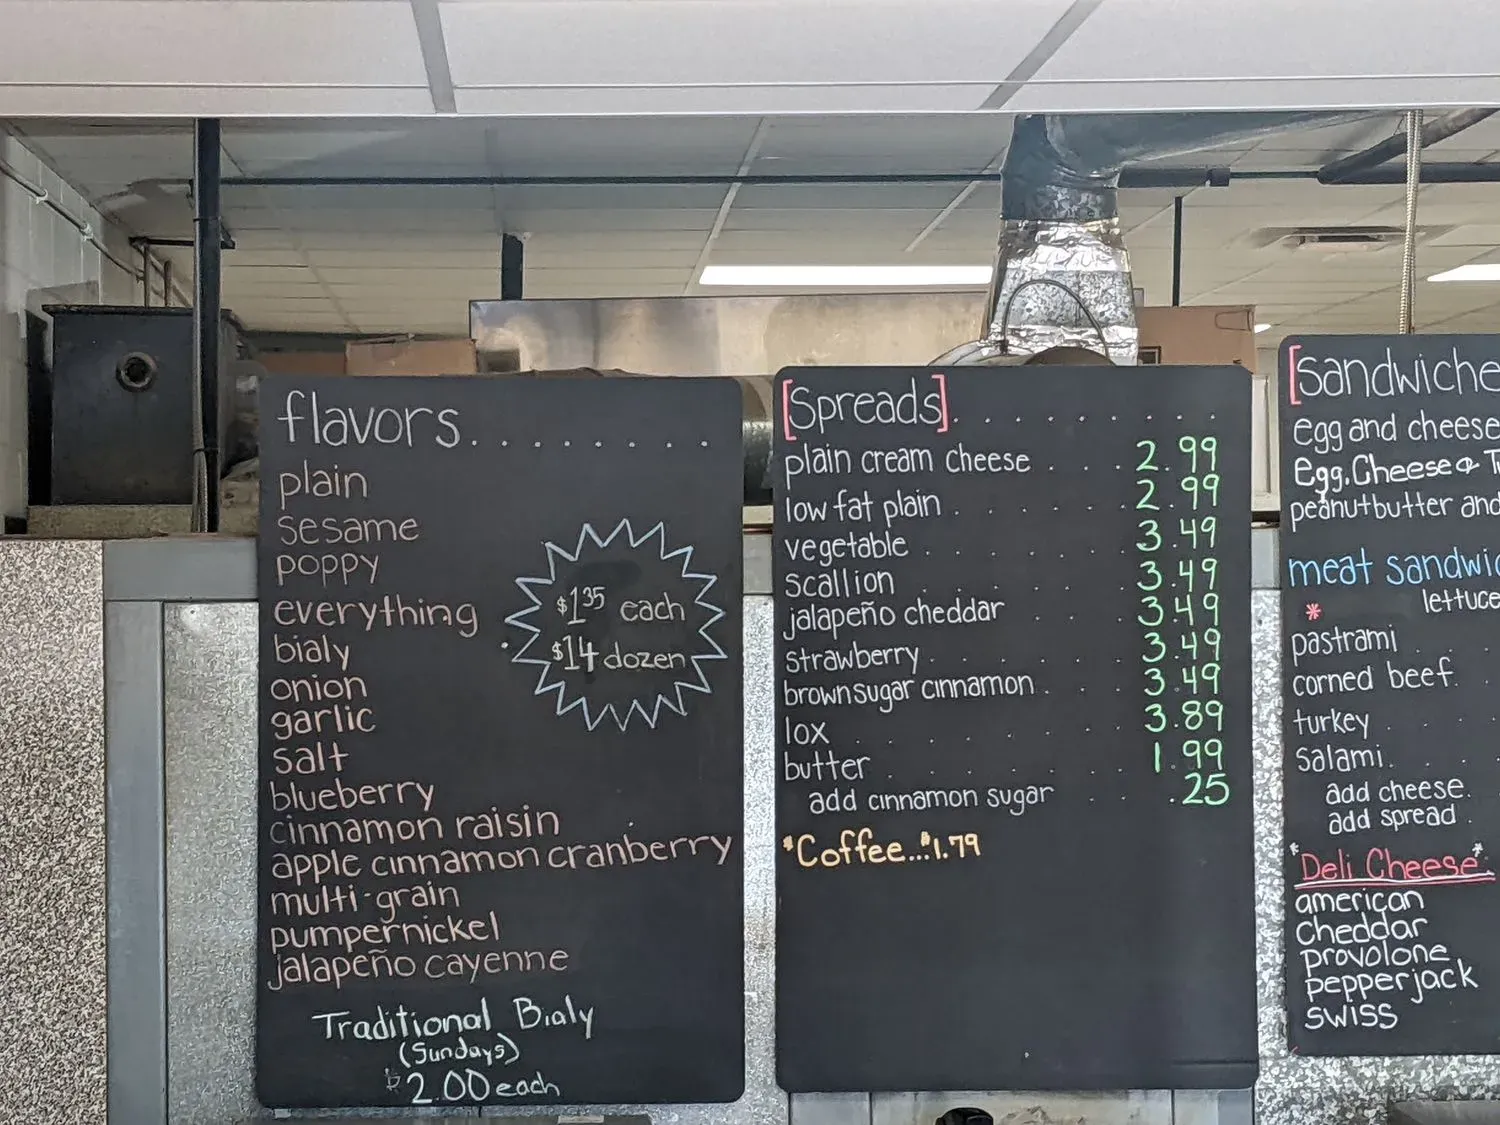 flavors........
plain
sesame
poppy
everything
bialy
onion
garlic
salt
blueberry
cinnamon raisin
apple cinnamon cranberry
multi-grain
pumpernickel
jalapeño cayenne
$1.35 each
$14 dozen
Traditional Bialy
(Sundays)
$2.00 each
[Spreads].........
plain cream cheese . . . 2.99
low fat plain . . . . . . 2.99
vegetable . . . . . . 3.49
scallion . . . . . . 3.49
jalapeño cheddar . . . 3.49
strawberry . . . . . . 3.49
brown sugar cinnamon . . . 3.49
lox . . . . . . . 3.89
butter . . . . . . 1.99
add cinnamon sugar . . .25
*Coffee...$1.79
[Sandwiche
egg and cheese
Egg.Cheese &
peanutbutter and
meat sandwic
* lettuce
pastrami . .
corned beef. .
turkey . .
salami. . .
add cheese.
add spread .
*Deli Cheese*
american
cheddar
provolone
pepperjack
swiss